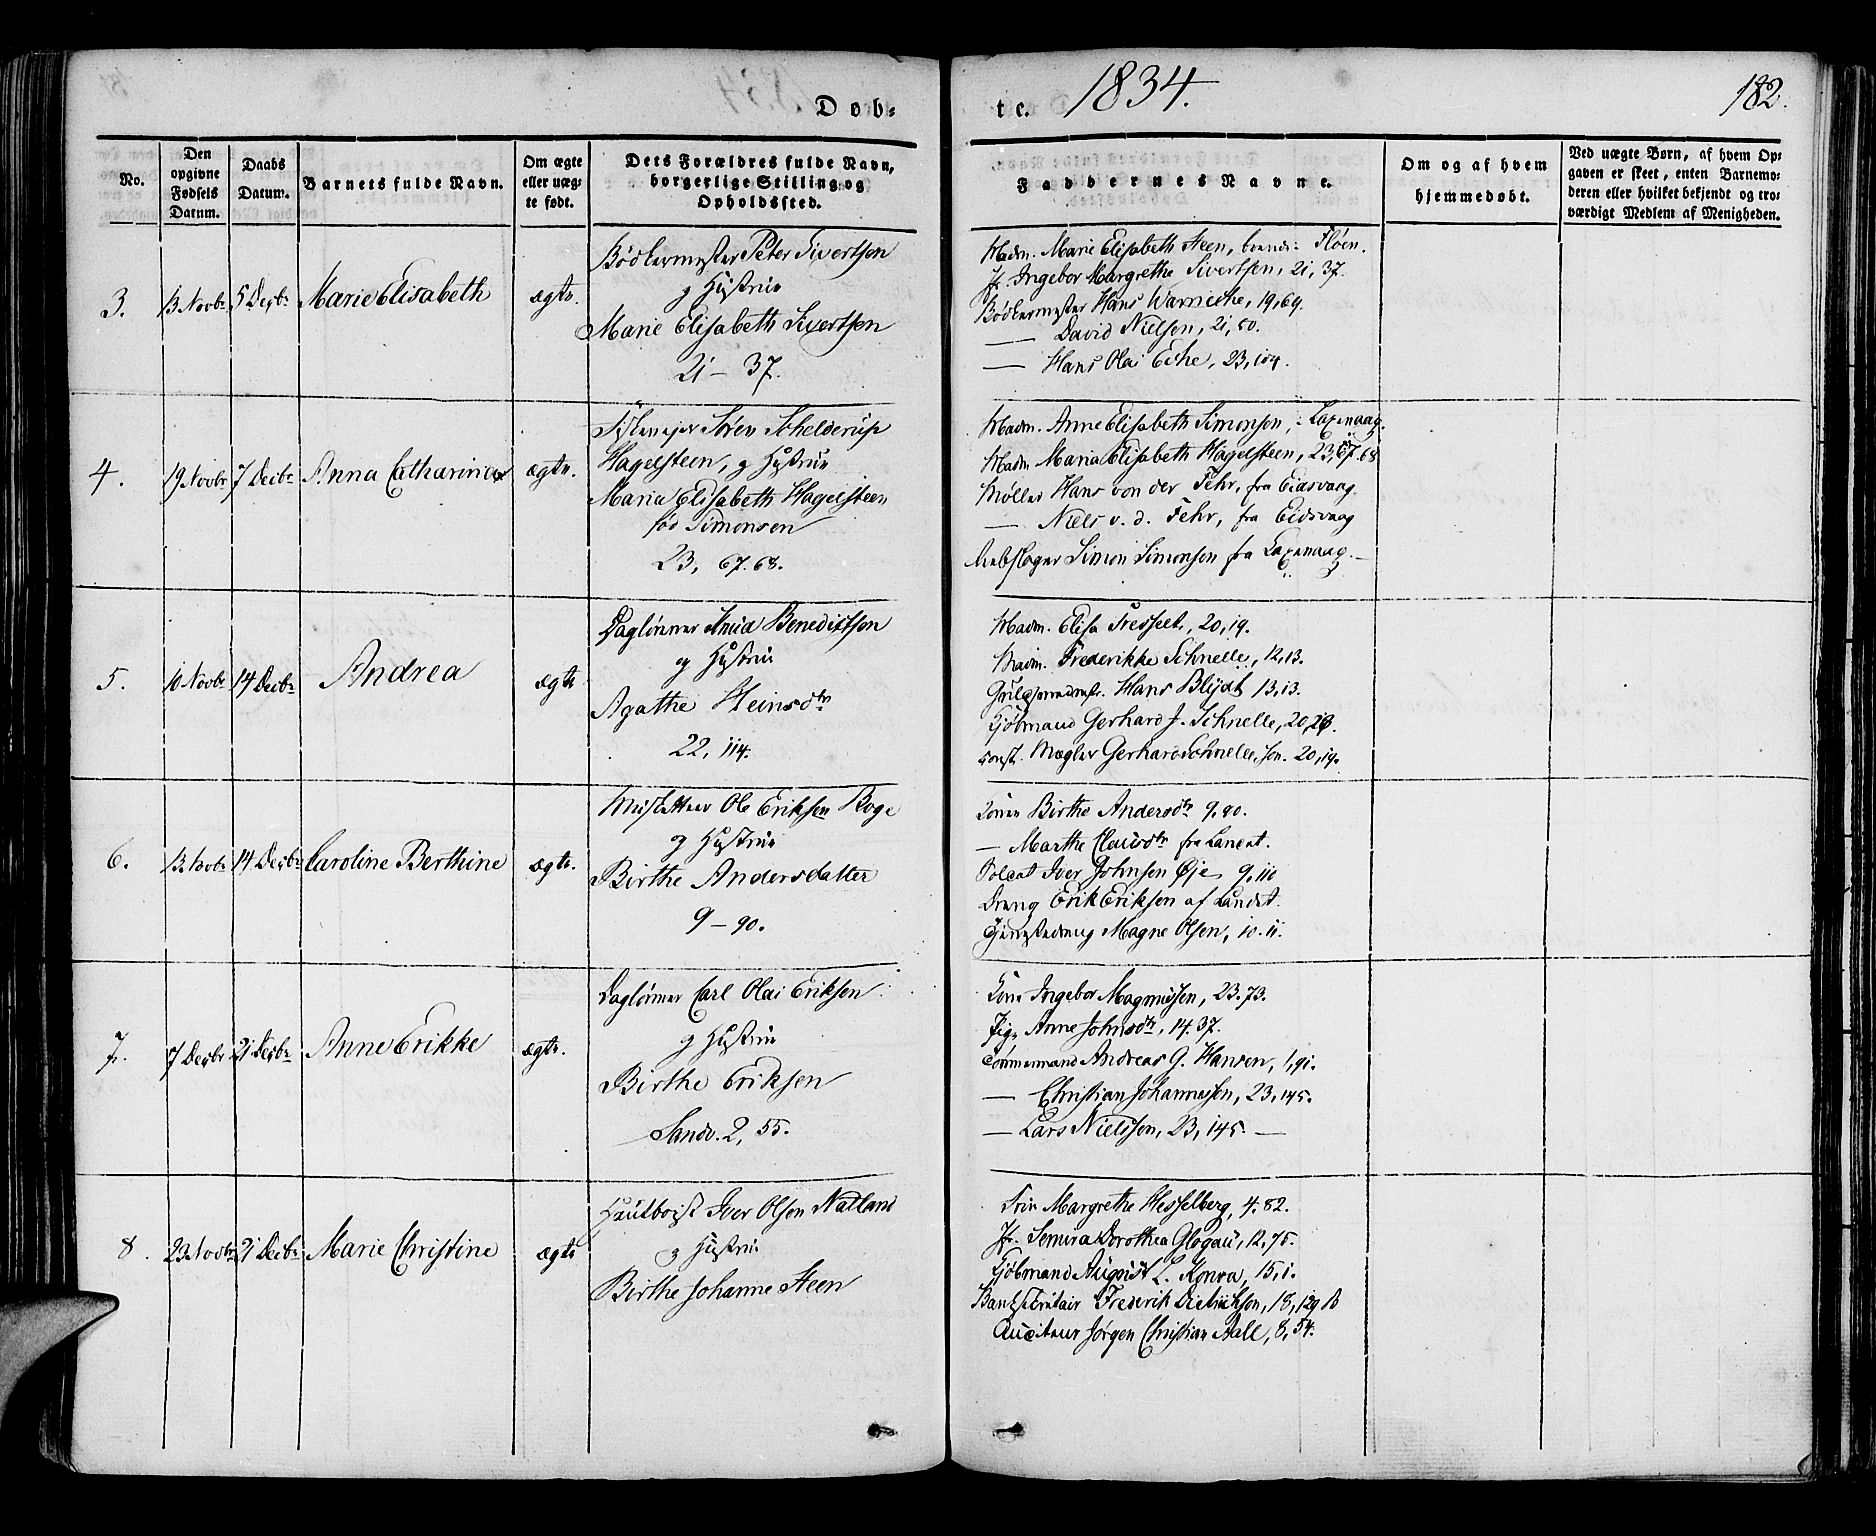 1834.
182.
Døb- te.
No.
Den opgivne Fødsels Datum.
Daabs Datum.
Barnets fulde Navn.
Om ægte eller uægte født.
Dets Forældres fulde Navn, borgerlige Stilling og Opholdssted.
Faddernes Navne.
Om og af hvem hjemmedøbt.
Ved uægte Børn, af hvem Opgaven er skeet, enten Barnemoderen eller hvilket bekjendt og troværdigt Medlem af Menigheden.
3.
13 Novbr
5 Decbr
Marie Elisabeth
ægte.
Bødkermester Peter Sivertsen
og Hustrue
Marie Elisabeth Sivertsen
21 - 37.
Madm. Marie Elisabeth Steen, Fløen.
Jf. Ingebor Margrethe Sivertsen, 21, 37.
Bødkermester Hans Warnecke, 19, 69.
— David Nielsen, 21, 50.
— Hans Olai Eche, 23, 104.
4.
19 Novbr
7 Decbr
Anna Catharina
ægte.
Søren Schelderup
Hagelsteen, og Hustrue
Maria Elisabeth Hagelsteen
fød Simonsen
23, 67.68.
Madm. Anne Elisabeth Simonsen, Laxevaag.
Madm Maria Elisabeth Hagelsteen, 23, 67.68
Møller Hans von der Fehr, fra Eidsvaag
— Niels v. d. Fehr, fra Eidsvaag
Rebslager Simon Simonsen fra Laxevaag. —
5.
10 Novbr
14 Decbr
Andrea
ægte
Daglønner Benedictsen
og Hustrue
Agathe Heinsdtr
22, 114.
Madm. Elisa Fresselt, 20, 19.
Madm. Frederikke Schnelle, 12, 13.
Guldsmedmstr. Hans Blydt 13, 13.
Kjøbmand Gerhard J. Schnelle, 20, 19.
const. Mægler Gerhard Schnelle, Sen. 20, 19.
6.
13 Novbr
14 Decbr
Caroline Berthine
ægte.
Ole Eriksen Roge
og Hustrue
Birthe Andersdatter
9 - 90.
Konen Birthe Andersdtr 9, 90.
— Marthe Clausdtr fra Landet.
Soldat Iver Johnsen Øje 9, 110
Dreng Erik Eriksen af Landet.
Tjenestedreng Magne Olsen, 10. 11.
7.
7 Decbr
21 Decbr
Anne Erikke
ægte.
Daglønner Carl Olai Eriksen
og Hustrue
Birthe Eriksen
Sandv. 2, 55.
Kone Ingebor Magnussen, 23. 73.
Pige Anne Johnsdtr, 14. 37.
Tømmermand Andreas G. Hansen, 1, 91.
— Christian Johannessen, 23, 145.
— Lars Nielssen, 23, 145. —
8.
23 Novbr
21 Decbr
Marie Christine
ægte
Hautboist Iver Olsen Natland
og Hustrue
Birthe Johanne Steen
Frue Margrethe Hesselberg, 4. 82.
Jf. Semira Dorothea Glogau, 12, 75.
Kjøbmand August L. Konra, 15, 1.
Banksekretair Frederik Dietrichson, 18, 129 B
Auditeur Jørgen Christian Aall, 8, 54.